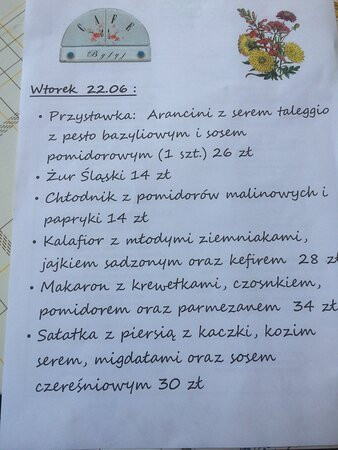 CAFE
Byfyj
Wtorek 22.06 :
• Przystawka: Arancini z serem taleggio
z pesto bazyliowym i sosem
pomidorowym (1 szt.) 26 zł
• Żur Śląski 14 zł
• Chłodnik z pomidorów malinowych i
papryki 14 zł
• Kalafior z młodymi ziemniakami,
jajkiem sadzonym oraz kefirem 28 zł
• Makaron z krewetkami, czosnkiem,
pomidorem oraz parmezanem 34 zł
• Sałatka z piersią z kaczki, kozim
serem, migdałami oraz sosem
czereśniowym 30 zł